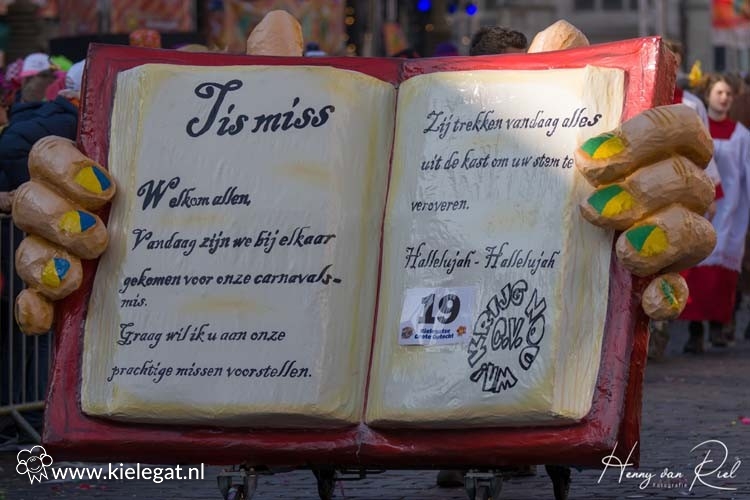 Tis miss
Welkom allen,
Vandaag zijn we bij elkaar
gekomen voor onze carnavals-
mis.
Graag wil ik u aan onze
prachtige missen voorstellen.
Zij trekken vandaag alles
uit de kast om uw stem te
veroveren.
Hallelujah - Hallelujah
19
Kielegatse
Grote Optocht
C.V.
WIJ KRIJGE NOU
www.kielegat.nl
Henny van Riel
Fotografie